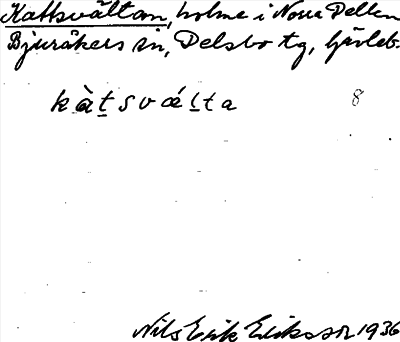 Kattsvältan, holme i Norra Dellen
Bjuråkers sn, Delsbo tg, Gävleb.
kàt̠svǽl̠ta 8
Nils Erik Eriksson 1936